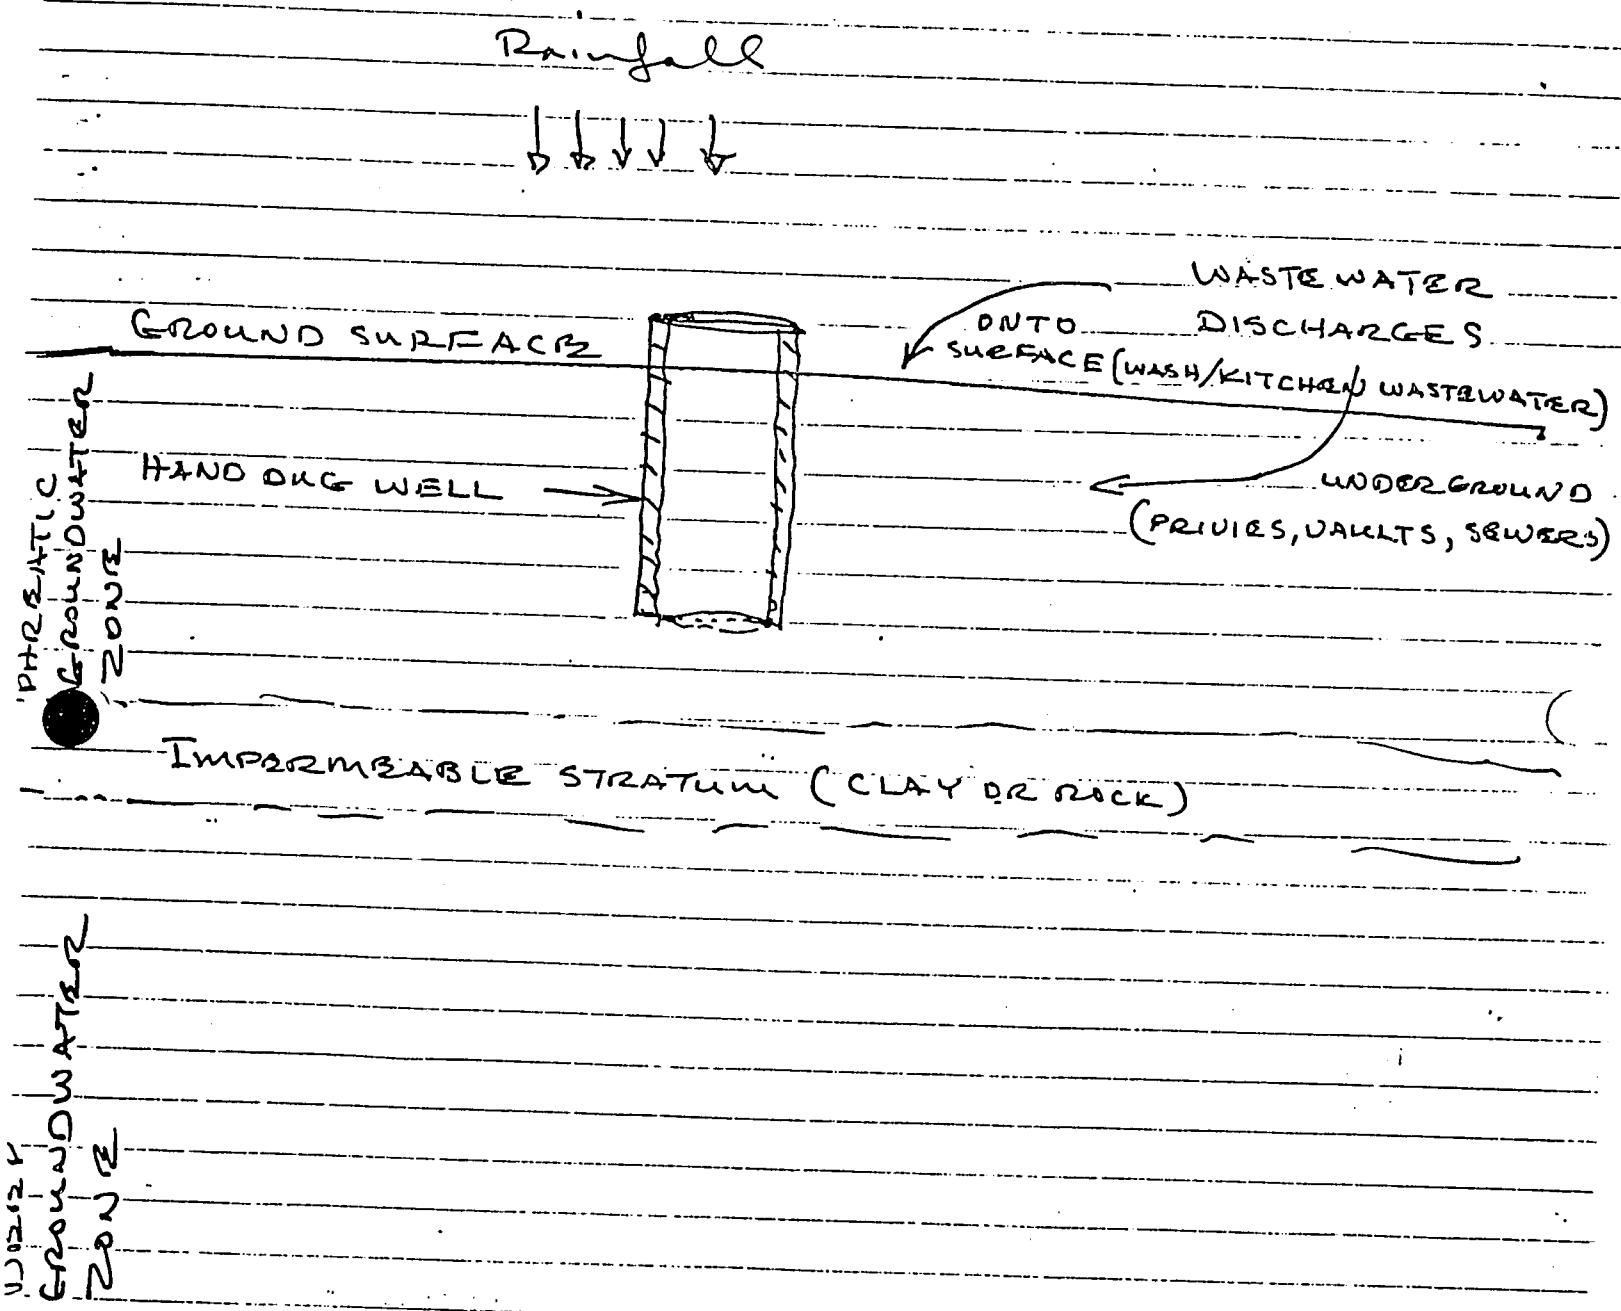 Rainfall
WASTE WATER
DISCHARGES
ONTO
SURFACE (WASH/KITCHEN WASTEWATER)
GROUND SURFACE
HAND DUG WELL
UNDERGROUND
(PRIVIES, VAULTS, SEWERS)
PHREATIC
GROUNDWATER
ZONE
IMPERMEABLE STRATUM (CLAY OR ROCK)
GROUNDWATER
ZONE